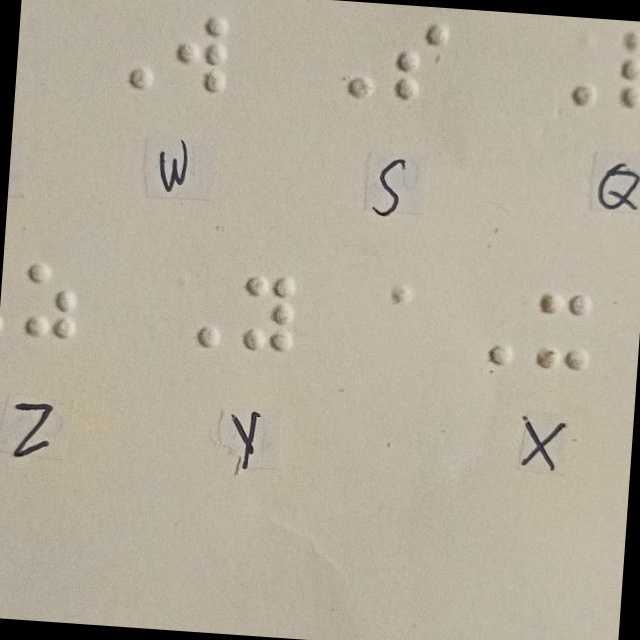 ⠠⠺ ⠠⠎
W S Q
⠵ ⠠⠽ ⠠⠭
Z Y X